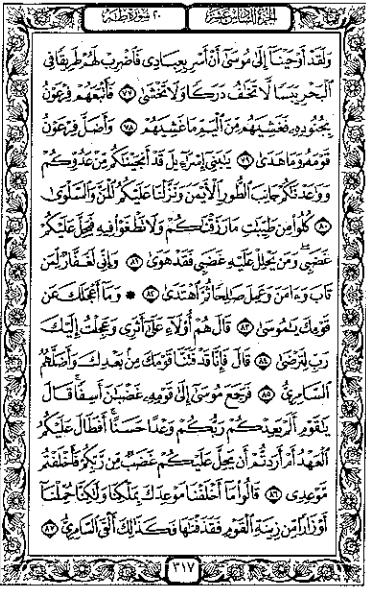 الجزء السادس عشر
٢٠ سورة طه
وَلَقَدْ أَوْحَيْنَا إِلَىٰ مُوسَىٰ أَنْ أَسْرِ بِعِبَادِي فَاضْرِبْ لَهُمْ طَرِيقًا فِي
الْبَحْرِ يَبَسًا لَّا تَخَافُ دَرَكًا وَلَا تَخْشَىٰ ٧٧ فَأَتْبَعَهُمْ فِرْعَوْنُ
بِجُنُودِهِ فَغَشِيَهُم مِّنَ الْيَمِّ مَا غَشِيَهُمْ ٧٨ وَأَضَلَّ فِرْعَوْنُ
قَوْمَهُ وَمَا هَدَىٰ ٧٩ يَٰبَنِي إِسْرَٰءِيلَ قَدْ أَنجَيْنَٰكُم مِّنْ عَدُوِّكُمْ
وَوَٰعَدْنَٰكُمْ جَانِبَ الطُّورِ الْأَيْمَنَ وَنَزَّلْنَا عَلَيْكُمُ الْمَنَّ وَالسَّلْوَىٰ
٨٠ كُلُوا مِن طَيِّبَٰتِ مَا رَزَقْنَٰكُمْ وَلَا تَطْغَوْا فِيهِ فَيَحِلَّ عَلَيْكُمْ
غَضَبِي وَمَن يَحْلِلْ عَلَيْهِ غَضَبِي فَقَدْ هَوَىٰ ٨١ وَإِنِّي لَغَفَّارٌ لِّمَن
تَابَ وَءَامَنَ وَعَمِلَ صَٰلِحًا ثُمَّ اهْتَدَىٰ ٨٢ * وَمَا أَعْجَلَكَ عَن
قَوْمِكَ يَٰمُوسَىٰ ٨٣ قَالَ هُمْ أُولَاءِ عَلَىٰ أَثَرِي وَعَجِلْتُ إِلَيْكَ
رَبِّ لِتَرْضَىٰ ٨٤ قَالَ فَإِنَّا قَدْ فَتَنَّا قَوْمَكَ مِن بَعْدِكَ وَأَضَلَّهُمُ
السَّامِرِيُّ ٨٥ فَرَجَعَ مُوسَىٰ إِلَىٰ قَوْمِهِ غَضْبَٰنَ أَسِفًا قَالَ
يَٰقَوْمِ أَلَمْ يَعِدْكُمْ رَبُّكُمْ وَعْدًا حَسَنًا أَفَطَالَ عَلَيْكُمُ
الْعَهْدُ أَمْ أَرَدتُّمْ أَن يَحِلَّ عَلَيْكُمْ غَضَبٌ مِّن رَّبِّكُمْ فَأَخْلَفْتُم
مَّوْعِدِي ٨٦ قَالُوا مَا أَخْلَفْنَا مَوْعِدَكَ بِمَلْكِنَا وَلَٰكِنَّا حُمِّلْنَا
أَوْزَارًا مِّن زِينَةِ الْقَوْمِ فَقَذَفْنَٰهَا فَكَذَٰلِكَ أَلْقَى السَّامِرِيُّ ٨٧
٣١٧